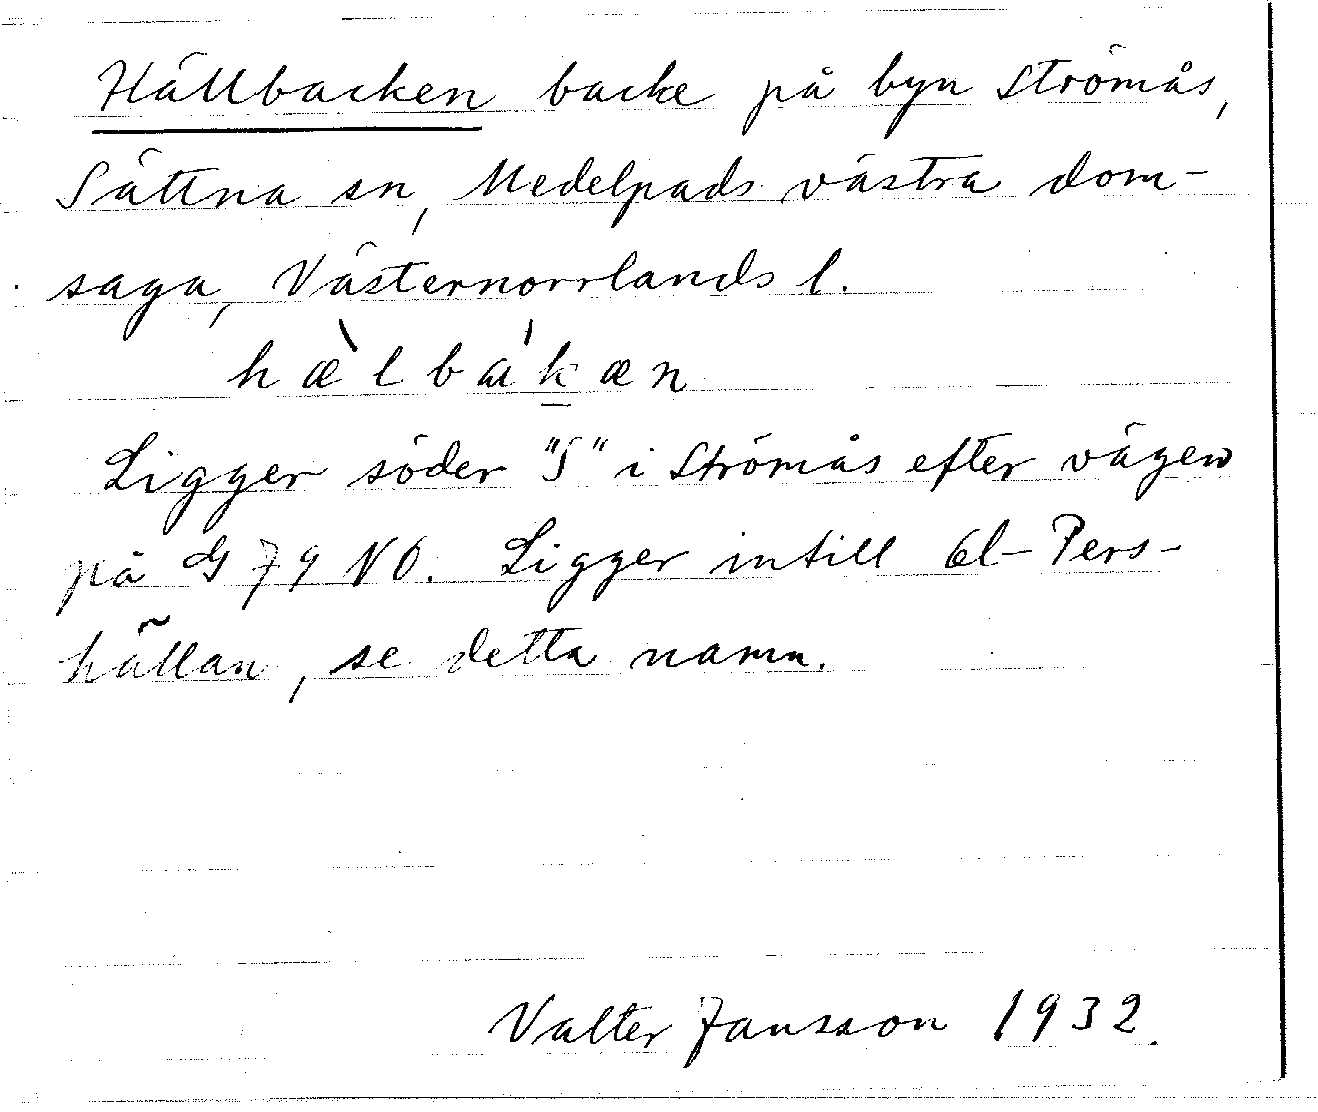 Hällbacken backe på byn Strömås,
Sättna sn, Medelpads västra dom-
saga, Västernorrlands l.
hæ̀lbákæn
Ligger söder "S" i Strömås efter vägen
på G 79 NO. Ligger intill Ol-Pers-
hällan, se detta namn.
Valter Jansson 1932.